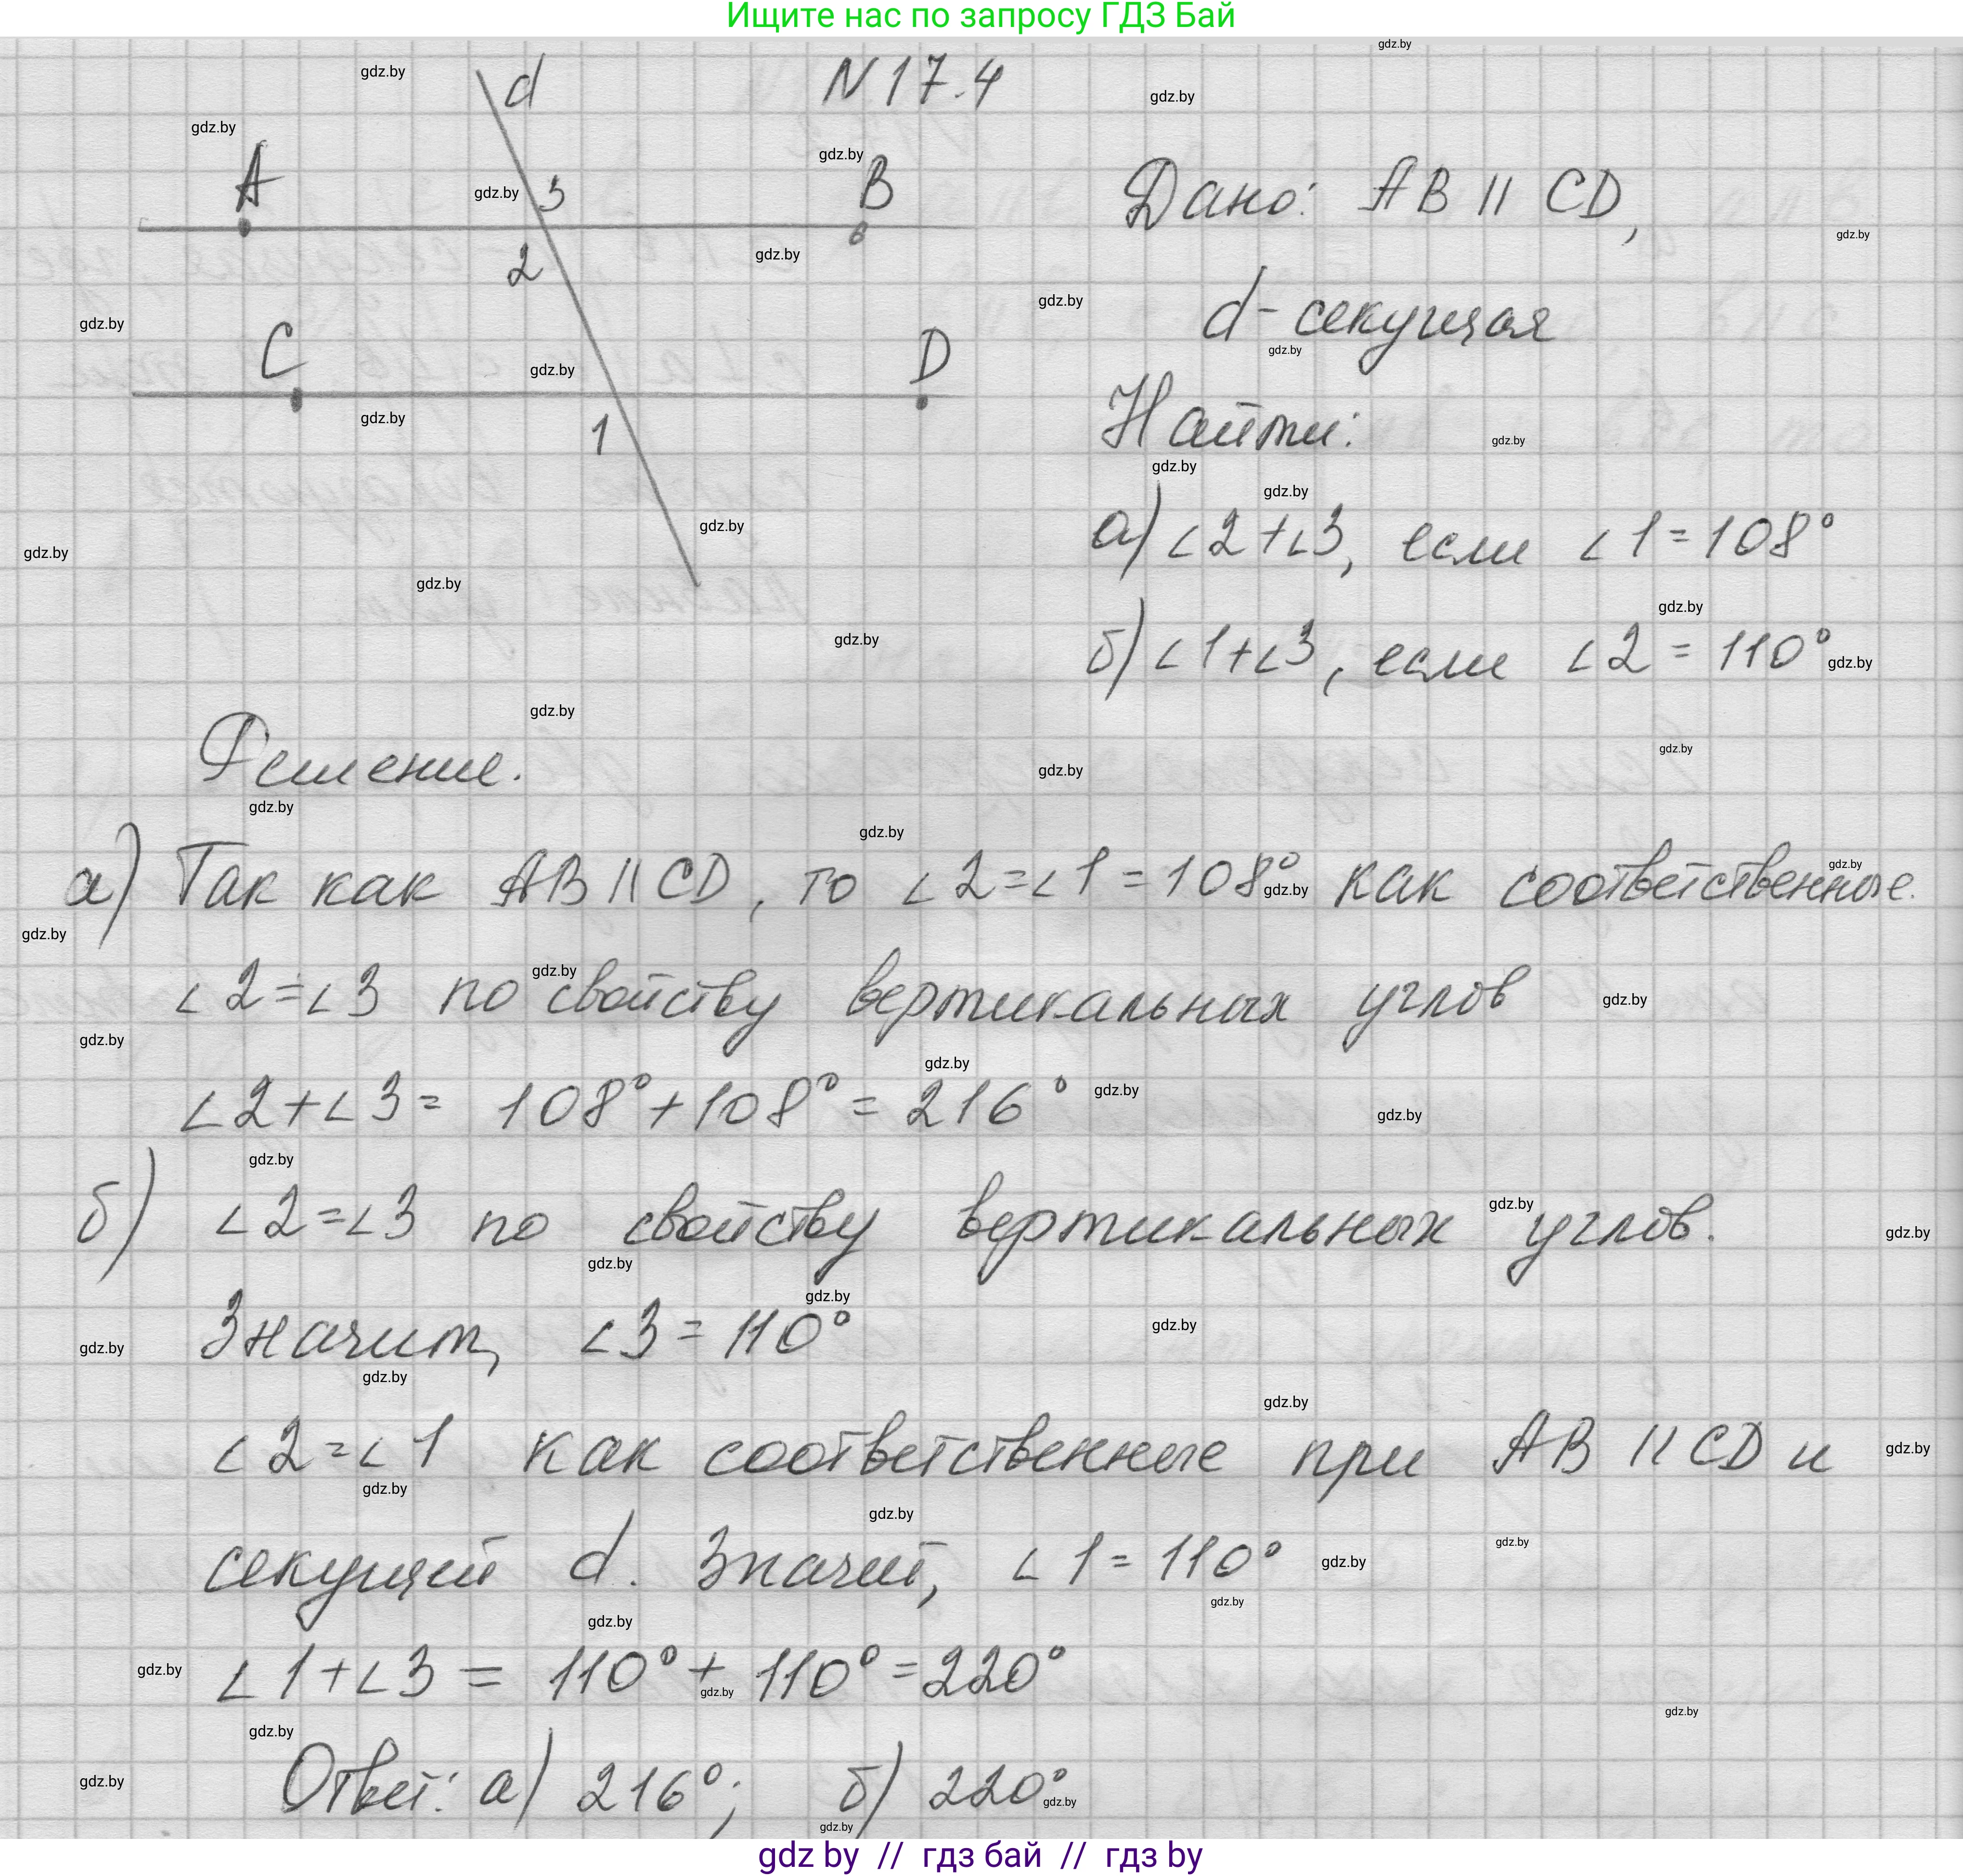 Ищите нас по запросу ГДЗ Бай
N 17.4
d
A
3
B
2
C
D
1
Дано: AB || CD,
d - секущая
Найти:
а) ∠2+∠3, если ∠1=108°
б) ∠1+∠3, если ∠2 = 110°
Решение.
а) Так как AB || CD, то ∠2=∠1=108° как соответственные.
∠2=∠3 по свойству вертикальных углов
∠2+∠3= 108°+108°=216°
б) ∠2=∠3 по свойству вертикальных углов.
Значит, ∠3=110°
∠2=∠1 как соответственные при AB || CD и
секущей d. Значит, ∠1=110°
∠1+∠3 = 110°+110°=220°
Ответ: а) 216°; б) 220°
gdz.by
gdz by // гдз бай // гдз by